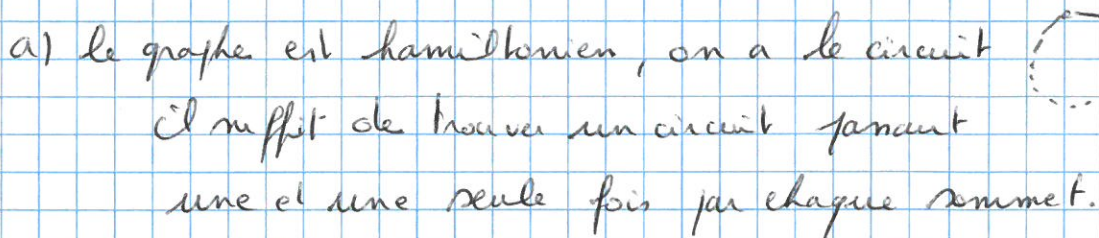 a) le graphe est hamiltonien, on a le circuit
il suffit de trouver un circuit passant
une et une seule fois par chaque sommet.